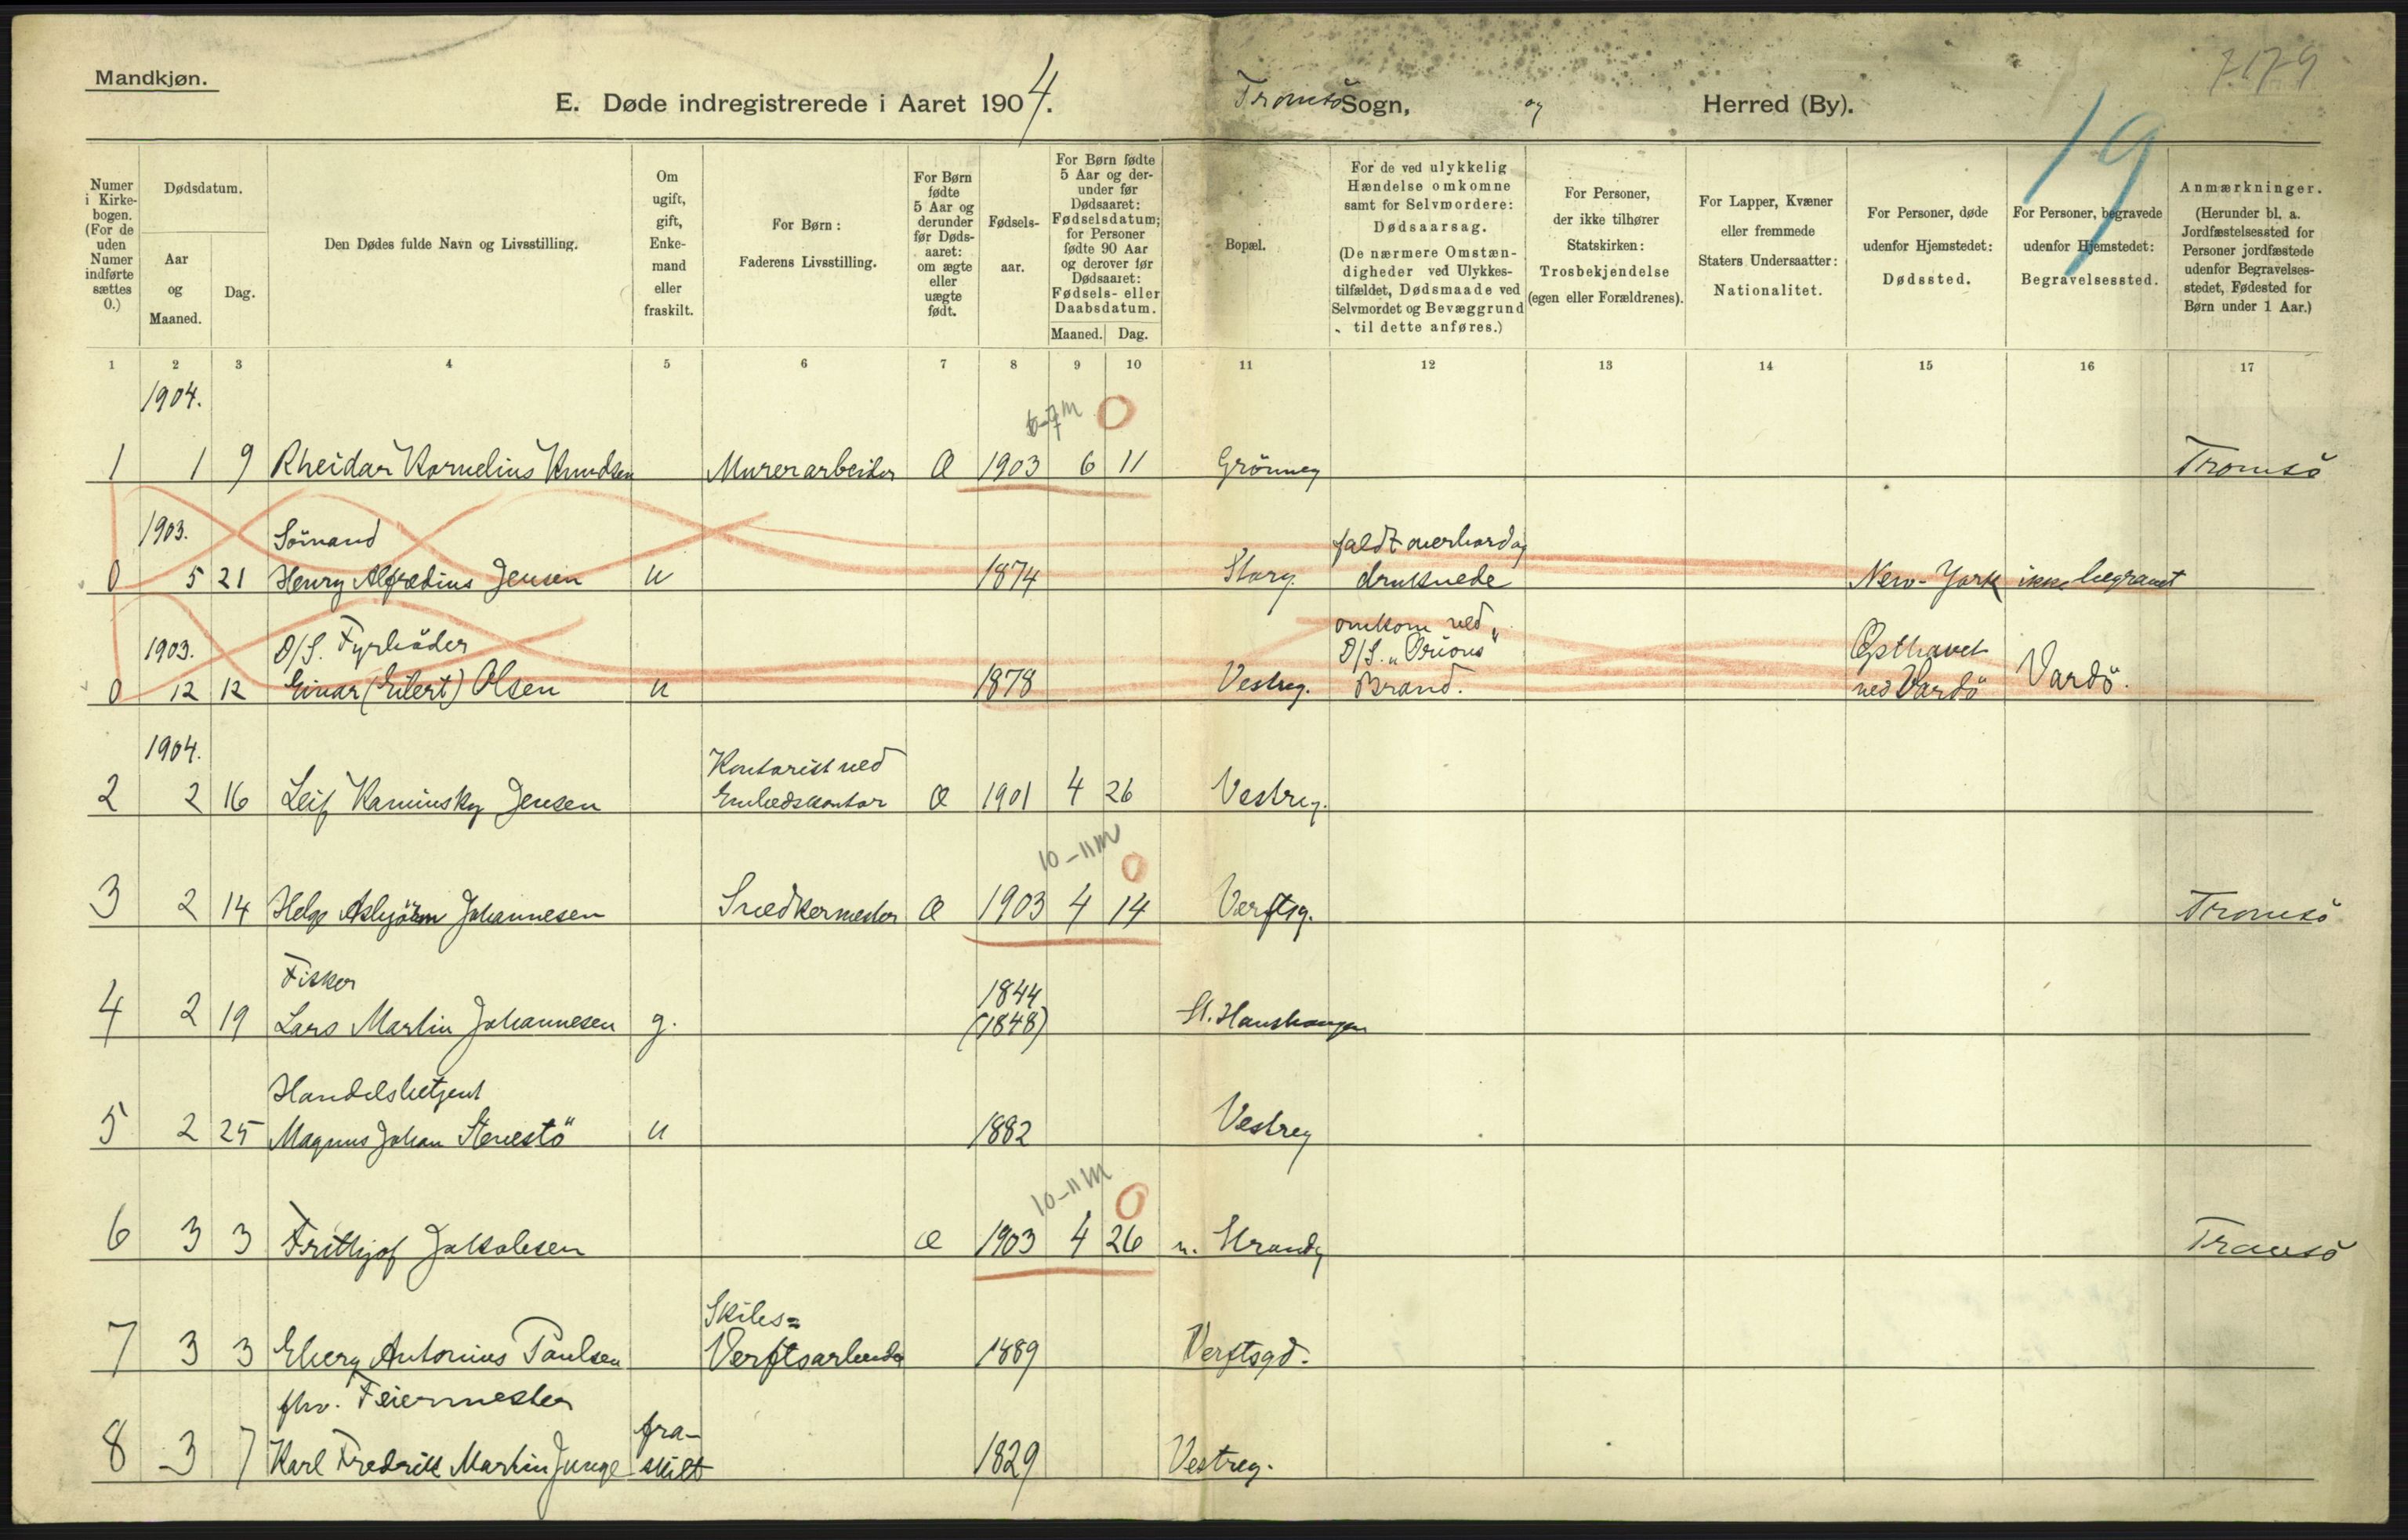 Mandkjøn.
7179
E. Døde indregistrerede i Aaret 1904. Tromsö Sogn, og Herred (By).
19
Numer i Kirke-bogen. (For de uden Numer indførte sættes 0.)
Dødsdatum.
Aar og Maaned.
Dag.
Den Dødes fulde Navn og Livsstilling.
Om ugift, gift, Enke-mand eller fraskilt.
For Børn: Faderens Livsstilling.
For Børn fødte 5 Aar og derunder før Døds-aaret: om ægte eller uægte født.
Fødsels-aar.
For Børn fødte 5 Aar og der-under før Dødsaaret: Fødselsdatum; for Personer fødte 90 Aar og derover før Dødsaaret: Fødsels- eller Daabsdatum.
Maaned. Dag.
Bopæl.
For de ved ulykkelig Hændelse omkomne samt for Selvmordere: Dødsaarsag. (De nærmere Omstæn-digheder ved Ulykkes-tilfældet, Dødsmaade ved Selvmordet og Bevæggrund til dette anføres.)
For Personer, der ikke tilhører Statskirken: Trosbekjendelse (egen eller Forældrenes).
For Lapper, Kvæner eller fremmede Staters Undersaatter: Nationalitet.
For Personer, døde udenfor Hjemstedet: Dødssted.
For Personer, begravede udenfor Hjemstedet: Begravelsessted.
Anmærkninger. (Herunder bl. a. Jordfæstelsessted for Personer jordfæstede udenfor Begravelses-stedet, Fødested for Børn under 1 Aar.)
1 2 3 4 5 6 7 8 9 10 11 12 13 14 15 16 17
1904.
6-7 m
1 1 9 Rheidar Kornelius Knudsen Murerarbeider Æ 1903 6 11 Grönneg Tromsö
1903. Sömand faldt overbord og
0 5 21 Henry Alfredius Jensen u 1874 Storg. druknede New-York ikke begravet
1903. D/S. Fyrböder omkom ved D/S. "Orions" Østhavet
0 12 12 Einar (Eilert) Olsen u 1878 Vestreg. Brand. ved Vardö Vardö.
1904. Kontorist ved
2 2 16 Leif Kaminsky Jensen Embedskontor Æ 1901 4 26 Vestreg.
10-11 m
3 2 14 Helge Asbjörn Johannesen Snedkermester Æ 1903 4 14 Verftsg. Tromsö
Fisker 1844
4 2 19 Lars Martin Johannesen g. (1848) St. Hanshaugen
Handelsbetjent
5 2 25 Magnus Johan Stenestö u 1882 Vestreg
10-11 m
6 3 3 Frithjof Jakobsen Æ 1903 4 26 n. Strandg Tromsö
Skibs=
7 3 3 Eberg Antonius Paulsen Verftsarbeider 1889 Verftsgd.
fhv. Feiermester fra-
8 3 7 Karl Fredrik Martin Junge skilt 1829 Vestreg.